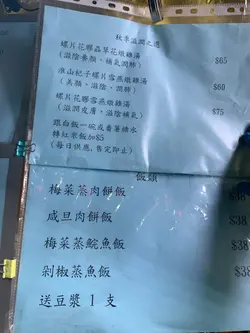 秋季滋潤之選
螺片花膠蟲草花燉雞湯
(滋陰養顏、補氣潤肺) $65
淮山杞子螺片雪燕燉雞湯
(美顏、滋陰、潤肺) $60
螺片花膠雪燕燉雞湯
(滋潤皮膚，滋陰補氣) $75
跟白飯一碗或番薯糖水
轉紅米飯加$5
(每日供應,售完即止)
飯類
梅菜蒸肉餅飯 $38
咸旦肉餅飯 $38
梅菜蒸鯇魚飯 $38
剁椒蒸魚飯 $38
送豆漿1支